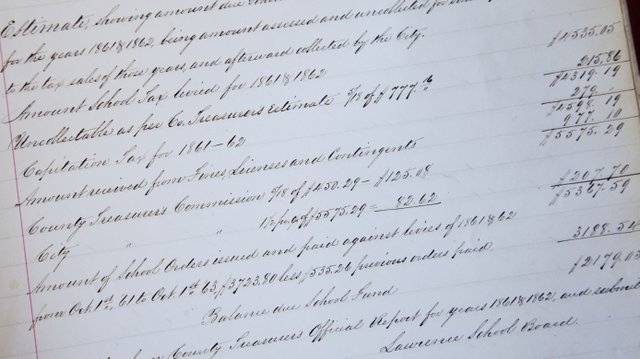 Estimate, showing amount due
for the years 1861 & 1862, being amount assessed and uncollected for
to the tax sales of those years, and afterward collected by the City.
Amount School Tax levied for 1861 & 1862 $4535.05
Uncollectable as per Co. Treasurers Estimate 5/8 of $777.16 215.86
$4319.19
Capitation Tax for 1861-62 279.
$4598.19
Amount received from Fines, Licenses and Contingents 977.10
$5575.29
County Treasurers Commission 5/8 of $450.29 - $125.08
City " " 1½ pr ct of $5575.29 = 82.62 $207.70
$5367.59
Amount of School Orders issued and paid against levies of 1861 & 62
from Oct. 1st, 61 to Oct. 1st 63, $3723.80 less $535.26 previous orders paid 3188.54
Balance due School Fund $2179.05
County Treasurers Official Report for years 1861 & 1862, and submit
Lawrence School Board.